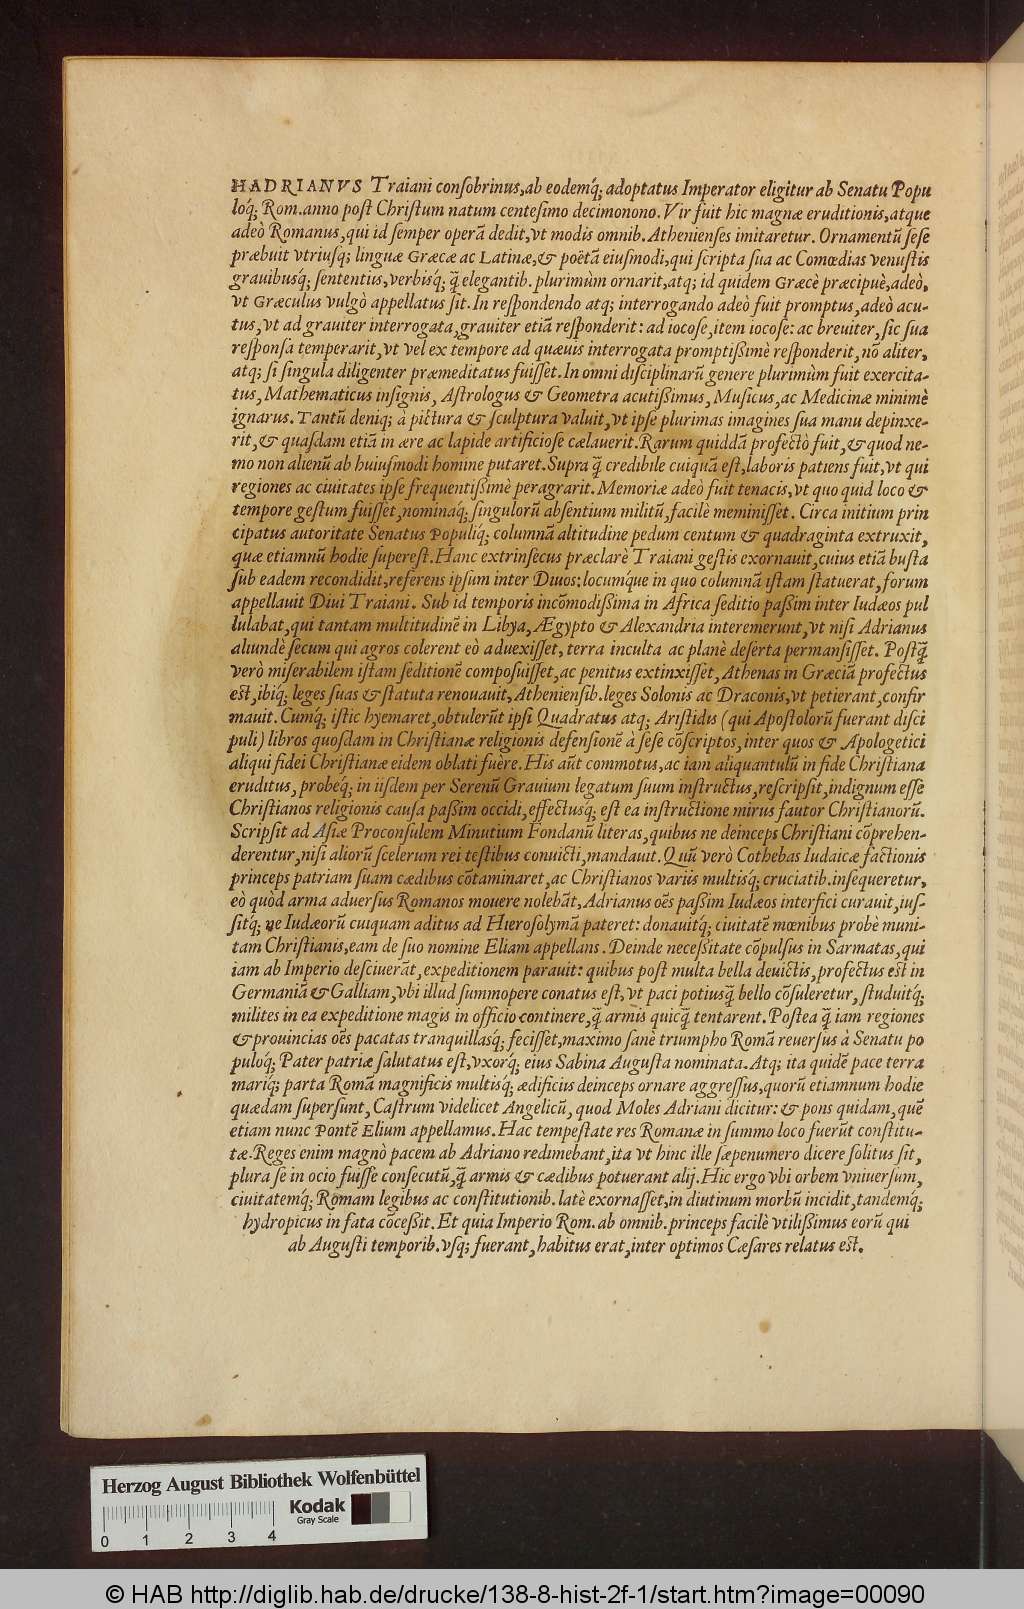 HADRIANVS Traiani conſobrinus, ab eodemq́; adoptatus Imperator eligitur ab Senatu Popu
loq́; Rom. anno poſt Chriſtum natum centeſimo decimonono. Vir fuit hic magnæ eruditionis, atque
adeò Romanus, qui id ſemper operã dedit, vt modis omnib. Athenienſes imitaretur. Ornamentũ ſeſe
præbuit vtriuſq; linguæ Græcæ ac Latinæ, & poëtã eiuſmodi, qui ſcripta ſua ac Comœdias venuſtis
grauibusq́; ſententiis, verbisq́; q̃ elegantib. plurimùm ornarit, atq; id quidem Græcè præcipuè, adeò,
vt Græculus vulgò appellatus ſit. In reſpondendo atq; interrogando adeò fuit promptus, adeò acu-
tus, vt ad grauiter interrogata, grauiter etiã reſponderit: ad iocoſe, item iocoſe: ac breuiter, ſic ſua
reſponſa temperarit, vt vel ex tempore ad quæuis interrogata promptißimè reſponderit, nõ aliter,
atq; ſi ſingula diligenter præmeditatus fuiſſet. In omni diſciplinarũ genere plurimùm fuit exercita-
tus, Mathematicus inſignis, Aſtrologus & Geometra acutißimus, Muſicus, ac Medicinæ minimè
ignarus. Tantũ deniq; à pictura & ſculptura valuit, vt ipſe plurimas imagines ſua manu depinxe-
rit, & quaſdam etiã in ære ac lapide artificioſe cælauerit. Rarum quiddã profectò fuit, & quod ne-
mo non alienũ ab huiuſmodi homine putaret. Supra q̃ credibile cuiquã eſt, laboris patiens fuit, vt qui
regiones ac ciuitates ipſe frequentißimè peragrarit. Memoriæ adeò fuit tenacis, vt quo quid loco &
tempore geſtum fuiſſet, nominaq́; ſingulorũ abſentium militũ, facilè meminiſſet. Circa initium prin
cipatus autoritate Senatus Populiq́; columnã altitudine pedum centum & quadraginta extruxit,
quæ etiamnũ hodie ſupereſt. Hanc extrinſecus præclarè Traiani geſtis exornauit, cuius etiã buſta
ſub eadem recondidit, referens ipſum inter Diuos: locumq́ue in quo columnã iſtam ſtatuerat, forum
appellauit Diui Traiani. Sub id temporis incõmodißima in Africa ſeditio paßim inter Iudæos pul
lulabat, qui tantam multitudinẽ in Libya, Ægypto & Alexandria interemerunt, vt niſi Adrianus
aliundè ſecum qui agros colerent eò aduexiſſet, terra inculta ac planè deſerta permanſiſſet. Poſtq̃
verò miſerabilem iſtam ſeditionẽ compoſuiſſet, ac penitus extinxiſſet, Athenas in Græciã profectus
eſt, ibiq́; leges ſuas & ſtatuta renouauit, Athenienſib. leges Solonis ac Draconis, vt petierant, confir
mauit. Cumq́; iſtic hyemaret, obtulerũt ipſi Quadratus atq; Ariſtidis (qui Apoſtolorũ fuerant diſci
puli) libros quoſdam in Chriſtianæ religionis defenſionẽ à ſeſe cõſcriptos, inter quos & Apologetici
aliqui fidei Chriſtianæ eidem oblati fuêre. His aũt commotus, ac iam aliquantulũ in fide Chriſtiana
eruditus, probeq́; in iiſdem per Serenũ Grauium legatum ſuum inſtructus, reſcripſit, indignum eſſe
Chriſtianos religionis cauſa paßim occidi, effectusq́; eſt ea inſtructione mirus fautor Chriſtianorũ.
Scripſit ad Aſiæ Proconſulem Minutium Fondanũ literas, quibus ne deinceps Chriſtiani cõprehen-
derentur, niſi aliorũ ſcelerum rei teſtibus conuicti, mandauit. Quũ verò Cothebas Iudaicæ factionis
princeps patriam ſuam cædibus cõtaminaret, ac Chriſtianos variis multisq́; cruciatib. inſequeretur,
eò quòd arma aduerſus Romanos mouere nolebãt, Adrianus oẽs paßim Iudæos interfici curauit, iuſ-
ſitq́; ne Iudæorũ cuiquam aditus ad Hieroſolymã pateret: donauitq́; ciuitatẽ mœnibus probè muni-
tam Chriſtianis, eam de ſuo nomine Eliam appellans. Deinde neceßitate cõpulſus in Sarmatas, qui
iam ab Imperio deſciuerãt, expeditionem parauit: quibus poſt multa bella deuictis, profectus eſt in
Germaniã & Galliam, vbi illud ſummopere conatus eſt, vt paci potiusq̃ bello cõſuleretur, ſtuduitq́;
milites in ea expeditione magis in officio continere, q̃ armis quicq̃ tentarent. Poſtea q̃ iam regiones
& prouincias oẽs pacatas tranquillasq́; feciſſet, maximo ſanè triumpho Romã reuerſus à Senatu po
puloq́; Pater patriæ ſalutatus eſt, vxorq́; eius Sabina Auguſta nominata. Atq; ita quidẽ pace terra
mariq́; parta Romã magnificis multisq́; ædificiis deinceps ornare aggreſſus, quorũ etiamnum hodie
quædam ſuperſunt, Caſtrum videlicet Angelicũ, quod Moles Adriani dicitur: & pons quidam, quẽ
etiam nunc Pontẽ Elium appellamus. Hac tempeſtate res Romanæ in ſummo loco fuerũt conſtitu-
tæ. Reges enim magnò pacem ab Adriano redimebant, ita vt hinc ille ſæpenumero dicere ſolitus ſit,
plura ſe in ocio fuiſſe conſecutũ, q̃ armis & cædibus potuerant alij. Hic ergo vbi orbem vniuerſum,
ciuitatemq́; Romam legibus ac conſtitutionib. latè exornaſſet, in diutinum morbũ incidit, tandemq́;
hydropicus in fata cõceßit. Et quia Imperio Rom. ab omnib. princeps facilè vtilißimus eorũ qui
ab Auguſti temporib. vſq; fuerant, habitus erat, inter optimos Cæſares relatus eſt.
Herzog August Bibliothek Wolfenbüttel
Kodak
Gray Scale
0 1 2 3 4
© HAB http://diglib.hab.de/drucke/138-8-hist-2f-1/start.htm?image=00090